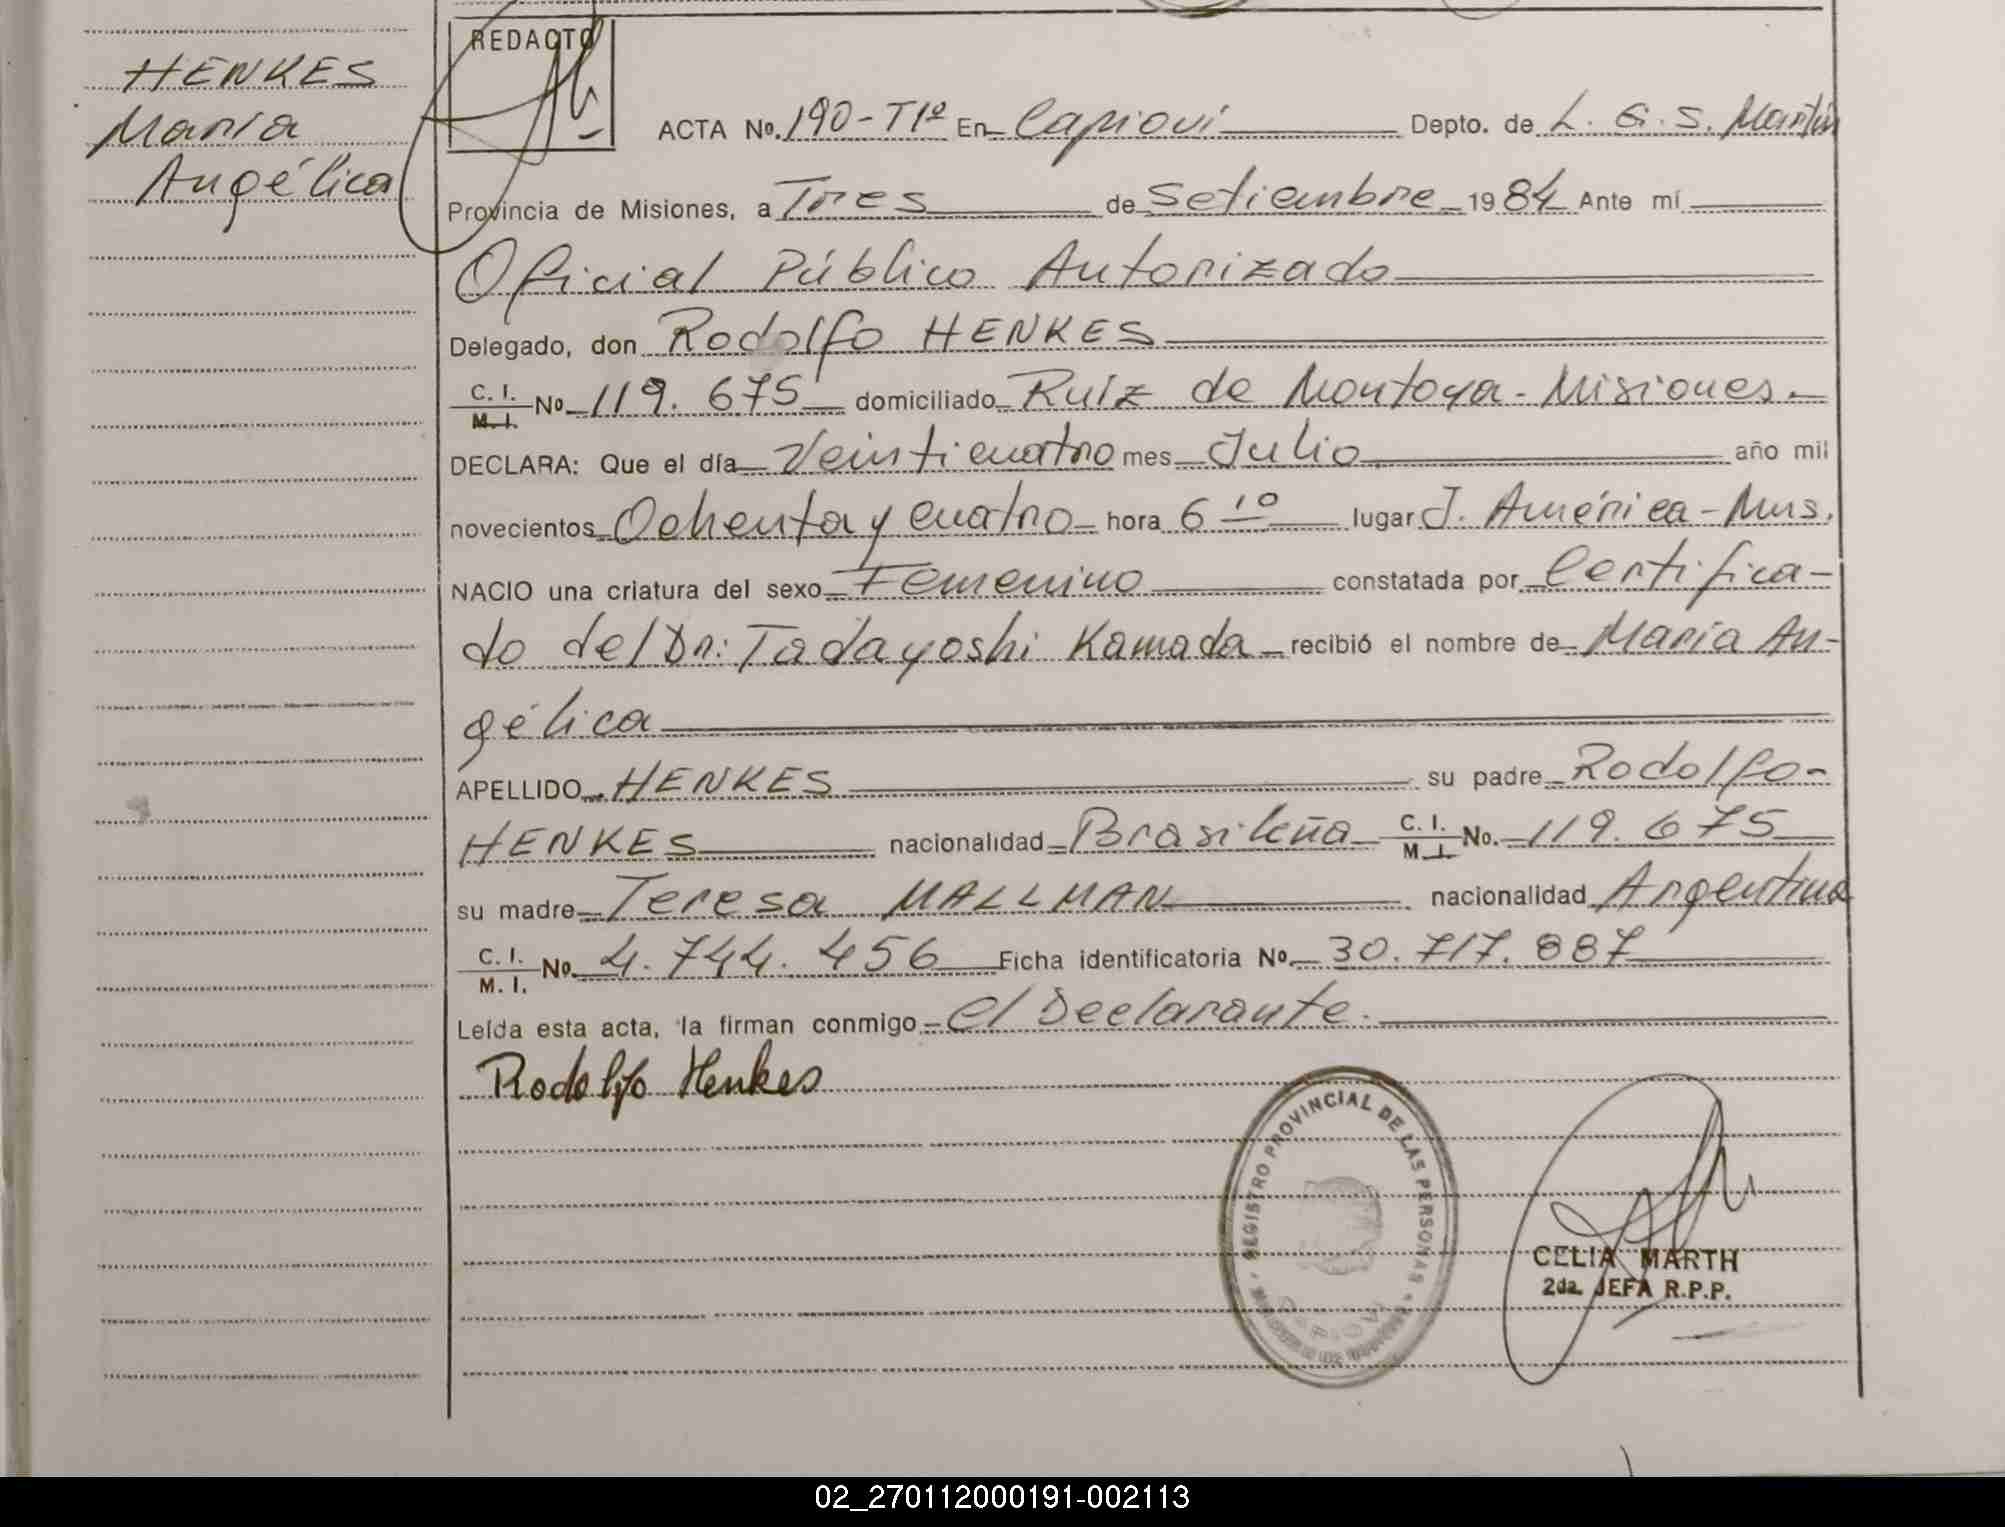 HENKES
María
Angélica
REDACTO
ACTA No. 190-T1º En Capioví Depto. de L. G. S. Martín
Provincia de Misiones, a Tres de Setiembre 1984 Ante mí
Oficial Público Autorizado
Delegado, don Rodolfo HENKES
C. I. M. I. No 119.675 domiciliado Ruíz de Montoya - Misiones.-
DECLARA: Que el día Veinticuatro mes Julio año mil
novecientos Ochenta y cuatro hora 6 10 lugar J. América - Mns.
NACIO una criatura del sexo Femenino constatada por Certifica-
do del Dr: Tadayoshi Kamada recibió el nombre de María An-
gélica
APELLIDO HENKES su padre Rodolfo-
HENKES nacionalidad Brasileña C. I. M. I. No. 119.675
su madre Teresa MALLMAN nacionalidad Argentina
C. I. M. I. No. 4.744.456 Ficha identificatoria No. 30.717.887
Leída esta acta, la firman conmigo el Declarante.
Rodolfo Henkes
REGISTRO PROVINCIAL DE LAS PERSONAS
CAPIOVI
CELIA MARTH
2da. JEFA R.P.P.
02_270112000191-002113